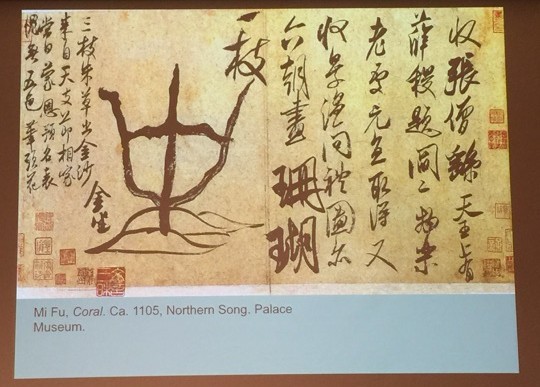 收張僧繇天王上有
薛稷題閻二物樂
老處元直取得又
收景溫問禮圖亦
六朝畫珊瑚
一枝
金坐
三枝朱草出金沙
來自天支節相家
當日蒙恩預名表
愧無五色筆頭花
Mi Fu, Coral. Ca. 1105, Northern Song. Palace
Museum.